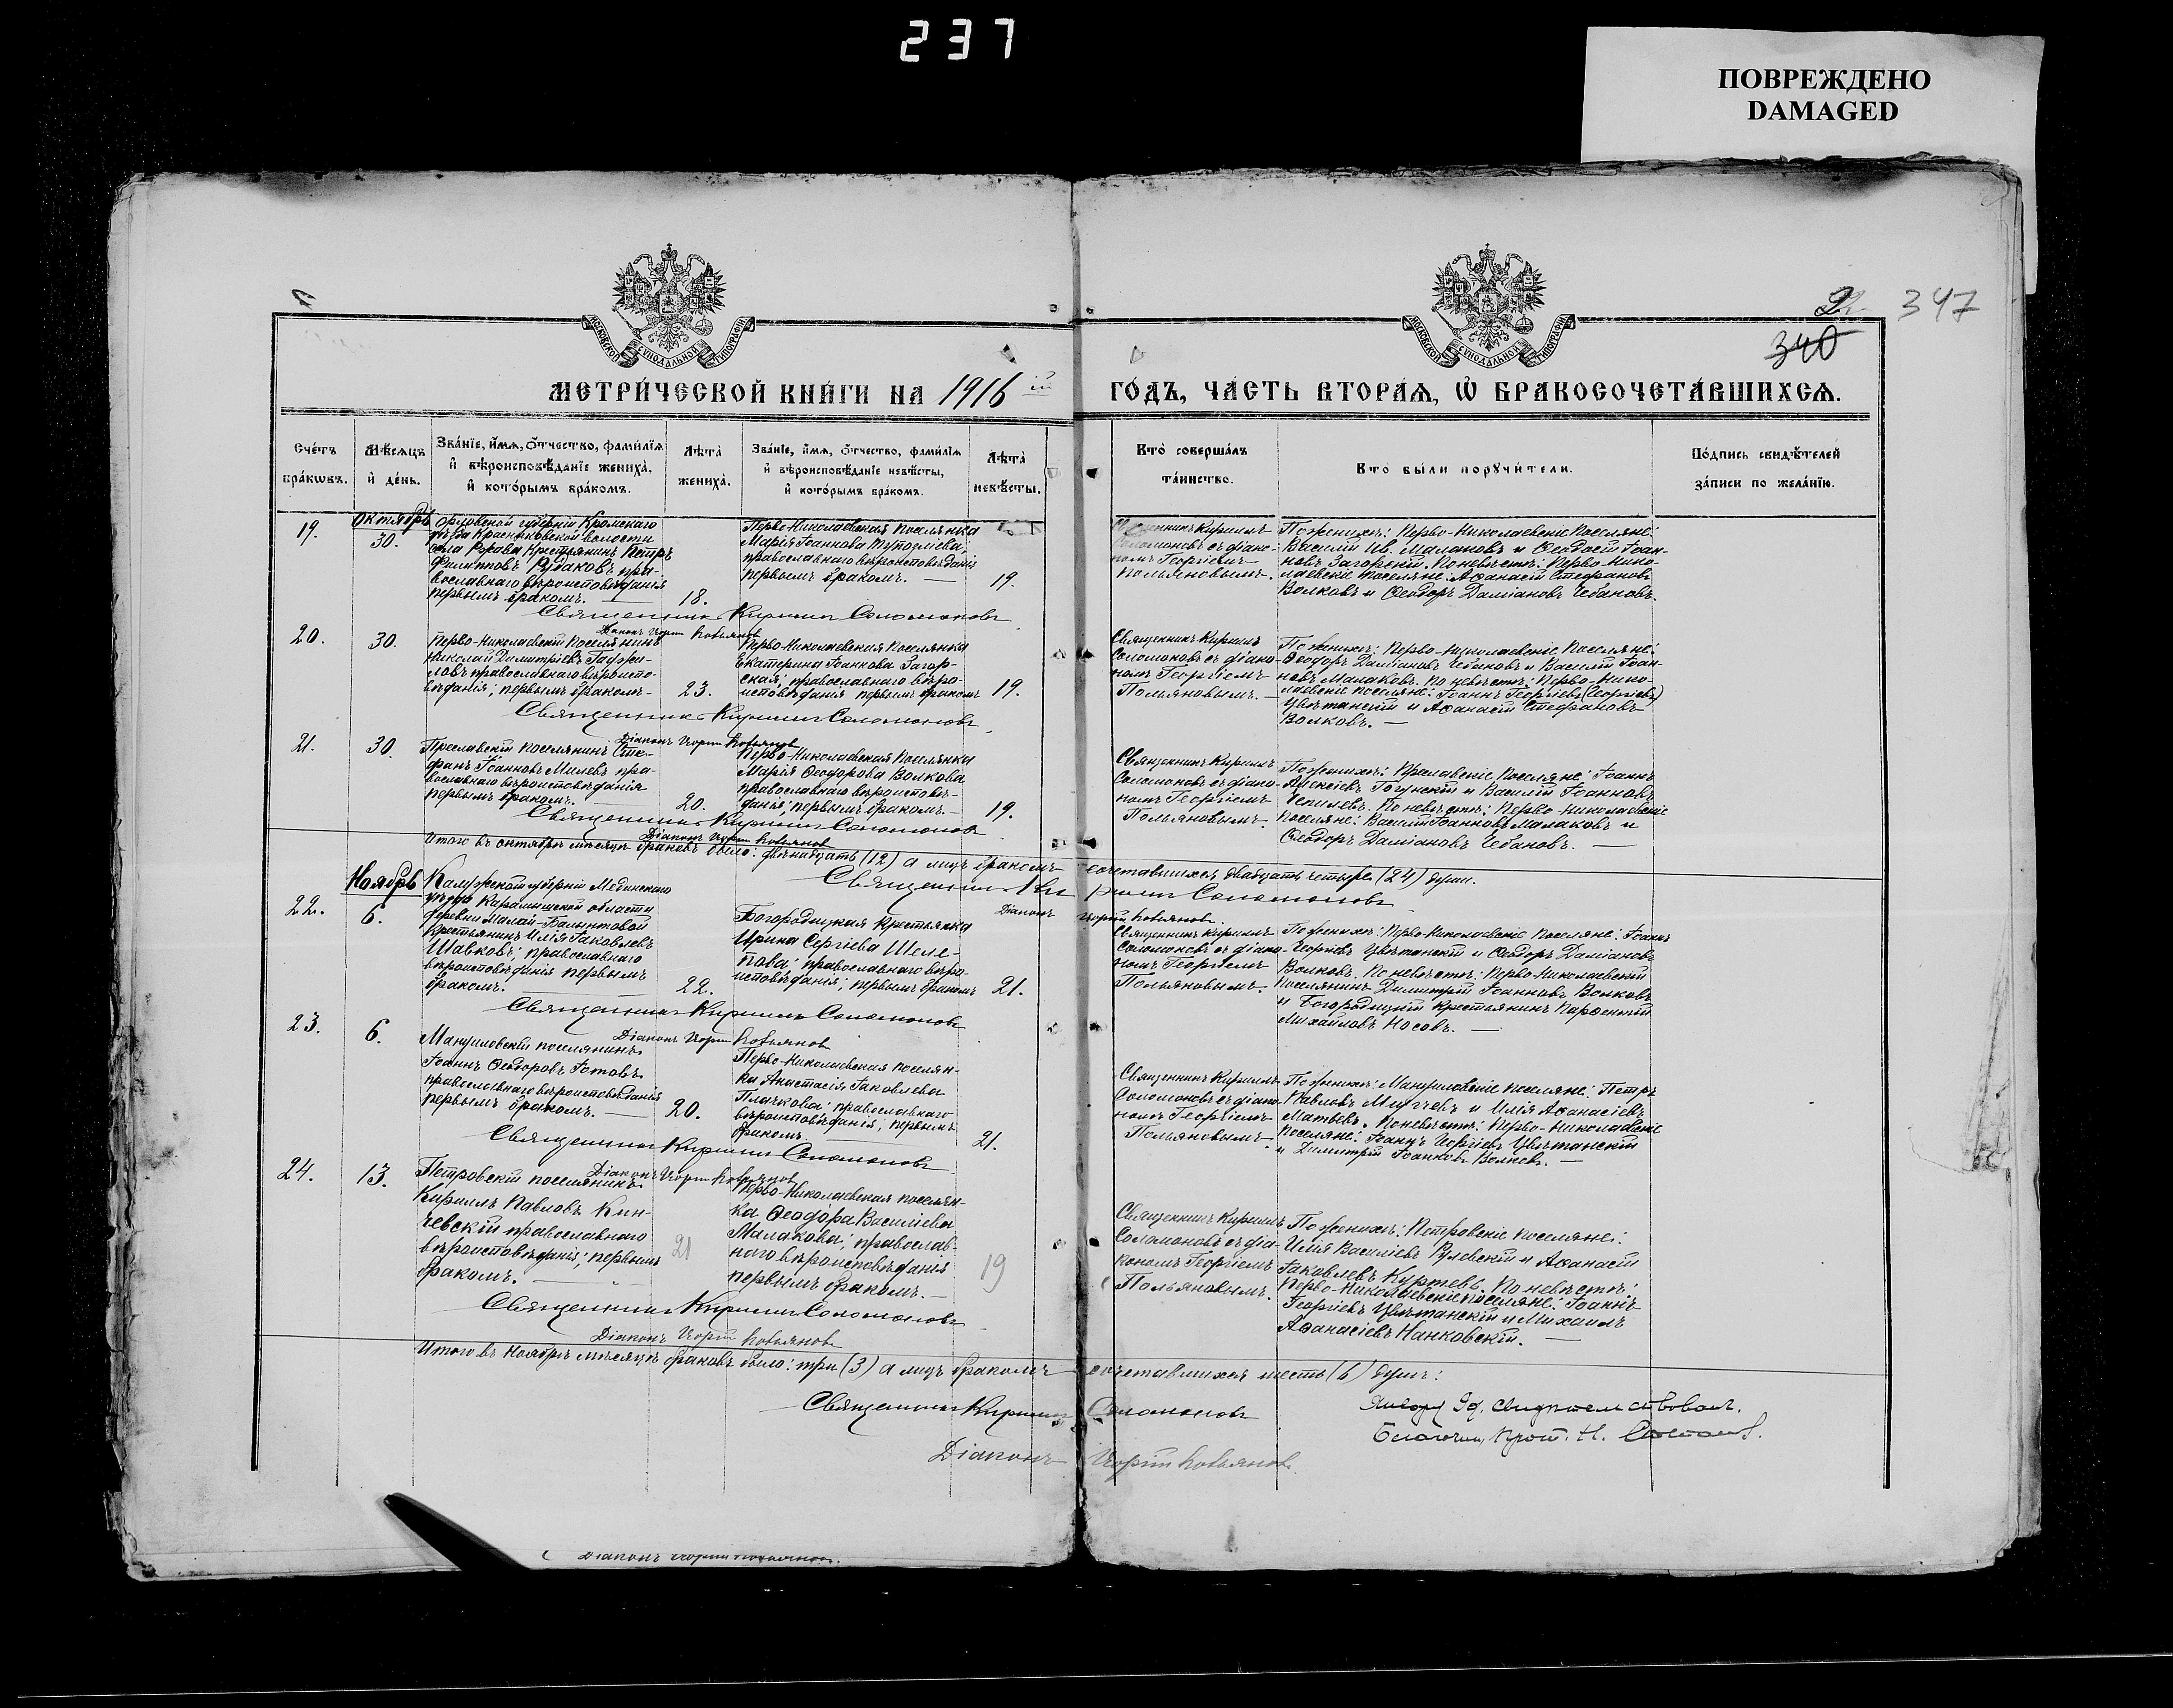 237
ПОВРЕЖДЕНО
DAMAGED
347
340
МОСКОВСКОЙ СУНОДАЛЬНОЙ ТИПОГРАФИИ
МОСКОВСКОЙ СУНОДАЛЬНОЙ ТИПОГРАФИИ
МЕТРИ́ЧЕСКОЙ КНИ́ГИ НА 1916 ій
ГО́ДЪ, ЧА́СТЬ ВТОРА́Ѧ, Ѡ҆ БРАКОСОЧЕТА́ВШИХСѦ.
Сче́тъ бра́кѡвъ.
Мѣ́сѧцъ и҆ де́нь.
Зва́нїе, и҆́мѧ, ѻ҆́тчество, фами́лїѧ
и҆ вѣроисповѣ́данїе жениха̀,
и҆ кото́рымъ бра́комъ.
Лѣ́та̀ жениха̀.
Зва́нїе, и҆́мѧ, ѻ҆́тчество, фами́лїѧ
и҆ вѣроисповѣ́данїе невѣ́сты,
и҆ кото́рымъ бра́комъ.
Лѣ́та̀ невѣ́сты.
Кто̀ соверша́лъ
та́инство.
Кто̀ бы́ли порꙋчи́тели.
По́дпись свидѣ́телей
за́писи по жела́нїю.
19.
Октябрь
30.
Орловской губерніи Кромскаго
уѣзда
волости
села
крестьянинъ Петръ
Филипповъ Рубаковъ пра-
вославнаго вѣроисповѣданія
первымъ бракомъ. —
18.
Перво-Николаевская поселянка
Марія Іоаннова
православнаго вѣроисповѣданія
первымъ бракомъ. —
19
Священникъ Кириллъ
Соломоновъ съ діако-
номъ Георгіемъ
Польяновымъ.
По женихѣ: Перво-Николаевскіе поселяне:
Василій Ив. Малаковъ и Ѳеодосій Іоан-
новъ Загорскій. По невѣстѣ: Перво-Нико-
лаевскіе поселяне: Аѳанасій Стефановъ
Волковъ и Ѳеодоръ Даміановъ Чебановъ.
Священникъ Кириллъ Соломоновъ
Діаконъ Георгій Польяновъ
20.
30.
Перво-Николаевскій поселянинъ
Николай Димитріевъ
православнаго вѣроиспо-
вѣданія; первымъ бракомъ.
23.
Перво-Николаевская поселянка
Екатерина Іоаннова Загор-
ская; православнаго вѣро-
исповѣданія первымъ бракомъ
19.
Священникъ Кириллъ
Соломоновъ съ діако-
номъ Георгіемъ
Польяновымъ. —
По женихѣ: Перво-Николаевскіе поселяне:
Ѳеодоръ Даміановъ Чебановъ и Василій Іоан-
новъ Малаковъ. По невѣстѣ: Перво-Нико-
лаевскіе поселяне: Іоаннъ Георгіевъ (Георгіевъ)
Цвѣтанскій и Аѳанасій Стефановъ
Волковъ. —
Священникъ Кириллъ Соломоновъ
Діаконъ Георгій Польяновъ
21.
30.
Преславскій поселянинъ Сте-
фанъ Іоанновъ Милевъ пра-
вославнаго вѣроисповѣданія
первымъ бракомъ. —
20.
Перво-Николаевская поселянка
Марія Ѳеодорова Волкова
православнаго вѣроисповѣ-
данія; первымъ бракомъ. —
19.
Священникъ Кириллъ
Соломоновъ съ діако-
номъ Георгіемъ
Польяновымъ.
По женихѣ: Преславскіе поселяне: Іоаннъ
Алексіевъ и Василій Іоанновъ
По невѣстѣ: Перво-Николаевскіе
поселяне: Василій Іоанновъ Малаковъ и
Ѳеодоръ Даміановъ Чебановъ. —
Священникъ Кириллъ Соломоновъ
Діаконъ Георгій Польяновъ
Итого въ октябрѣ мѣсяцѣ браковъ было: двѣнадцать (12) а лицъ бракомъ сочетавшихся двадцать четыре (24) души.
Священникъ Кириллъ Соломоновъ
Діаконъ Георгій Польяновъ.
Ноябрь
22.
6.
Калужской губерніи Медынскаго
уѣзда
деревни
крестьянинъ Илія Іаковлевъ
Шавковъ; православнаго
вѣроисповѣданія первымъ
бракомъ.
22.
Богородицкая крестьянка
Ирина Сергіева Шеле-
пова; православнаго вѣро-
исповѣданія; первымъ бракомъ
21.
Священникъ Кириллъ
Соломоновъ съ діако-
номъ Георгіемъ
Польяновымъ.
По женихѣ: Перво-Николаевскіе поселяне: Іоаннъ
Георгіевъ Цвѣтанскій и Ѳеодоръ Даміановъ
Волковъ. По невѣстѣ: Перво-Николаевскій
поселянинъ Димитрій Іоанновъ Волковъ
и Богородицкій крестьянинъ Парѳеній
Михайловъ Носовъ. —
Священникъ Кириллъ Соломоновъ
Діаконъ Георгій Польяновъ
23.
6.
Мануиловскій поселянинъ
Іоаннъ Ѳеодоровъ
православнаго вѣроисповѣданія
первымъ бракомъ. —
20.
Перво-Николаевская поселян-
ка Анастасія Іаковлева
Плачкова; православнаго
вѣроисповѣданія; первымъ
бракомъ.
21.
Священникъ Кириллъ
Соломоновъ съ діако-
номъ Георгіемъ
Польяновымъ.
По женихѣ: Мануиловскіе поселяне: Петръ
Павловъ и Илія Аѳанасіевъ
По невѣстѣ: Перво-Николаевскіе
поселяне: Іоаннъ Георгіевъ Цвѣтанскій
и Димитрій Іоанновъ Волковъ. —
Священникъ Кириллъ Соломоновъ
Діаконъ Георгій Польяновъ
24.
13.
Петровскій поселянинъ
Кириллъ Павловъ Кин-
чевскій православнаго
вѣроисповѣданія; первымъ
бракомъ. —
21
Перво-Николаевская поселян-
ка Ѳеодора Василіева
Малакова; православ-
наго вѣроисповѣданія
первымъ бракомъ. —
19
Священникъ Кириллъ
Соломоновъ съ діа-
кономъ Георгіемъ
Польяновымъ.
По женихѣ: Петровскіе поселяне:
Илія Василіевъ и Аѳанасій
Іаковлевъ По невѣстѣ:
Перво-Николаевскіе поселяне: Іоаннъ
Георгіевъ Цвѣтанскій и Михаилъ
Аѳанасіевъ Нанковскій. —
Священникъ Кириллъ Соломоновъ
Діаконъ Георгій Польяновъ
Итого въ ноябрѣ мѣсяцѣ браковъ было: три (3) а лицъ бракомъ сочетавшихся шесть (6) душъ:
Священникъ Кириллъ Соломоновъ
Діаконъ Георгій Польяновъ.
свидѣтельствовалъ.
Благочин. прот. Н.
Діаконъ Георгій Польяновъ.